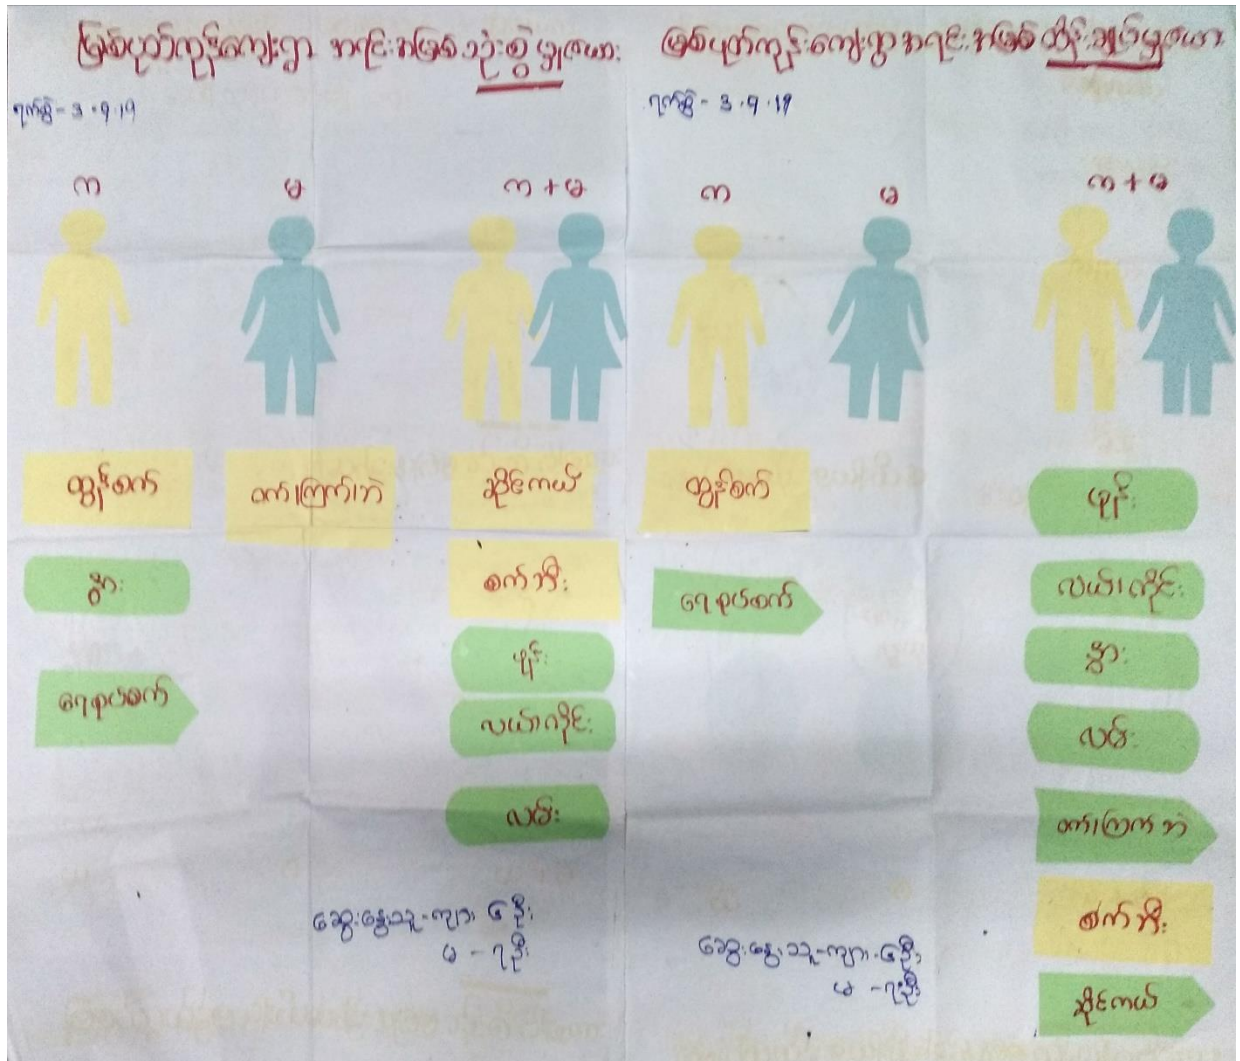 မြစ်ပုတ်ကုန်းကျေးရွာ အရင်းအမြစ်သုံးစွဲမှုဇယား
ရက်စွဲ - 3.9.19
က
မ
က + မ
ထွန်စက်
ဝက်၊ကြက်၊ဘဲ
ဆိုင်ကယ်
နွား
စက်ဘီး
ဖုန်း
ရေစုပ်စက်
လယ်၊ကိုင်း
လမ်း
ဆွေးနွေးသူ-ကျား ၆ဦး
မ - ၇ဦး
မြစ်ပုတ်ကုန်းကျေးရွာအရင်းအမြစ်ထိန်းချုပ်မှုဇယား
ရက်စွဲ - 3.9.19
က
မ
က + မ
ထွန်စက်
ဖုန်း
ရေစုပ်စက်
လယ်၊ကိုင်း
နွား
လမ်း
ဝက်၊ကြက်ဘဲ
စက်ဘီး
ဆိုင်ကယ်
ဆွေးနွေးသူ-ကျား-၆ဦး
မ - ၇ဦး